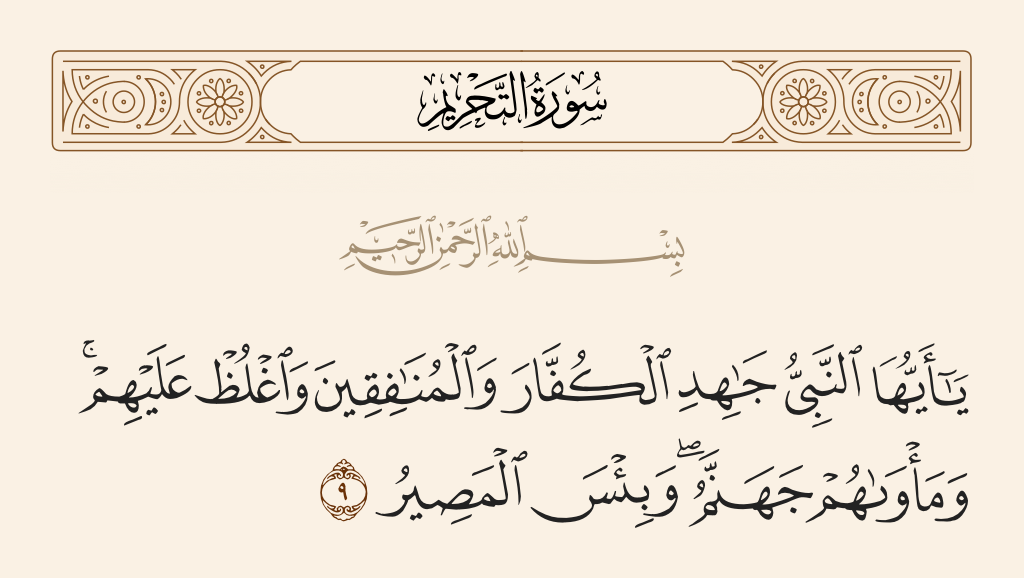 سُورَةُ التَّحْرِيمِ
بِسْمِ ٱللَّهِ ٱلرَّحْمَٰنِ ٱلرَّحِيمِ
يَـٰٓأَيُّهَا ٱلنَّبِىُّ جَـٰهِدِ ٱلْكُفَّارَ وَٱلْمُنَـٰفِقِينَ وَٱغْلُظْ عَلَيْهِمْ ۚ
وَمَأْوَىٰهُمْ جَهَنَّمُ ۖ وَبِئْسَ ٱلْمَصِيرُ ٩